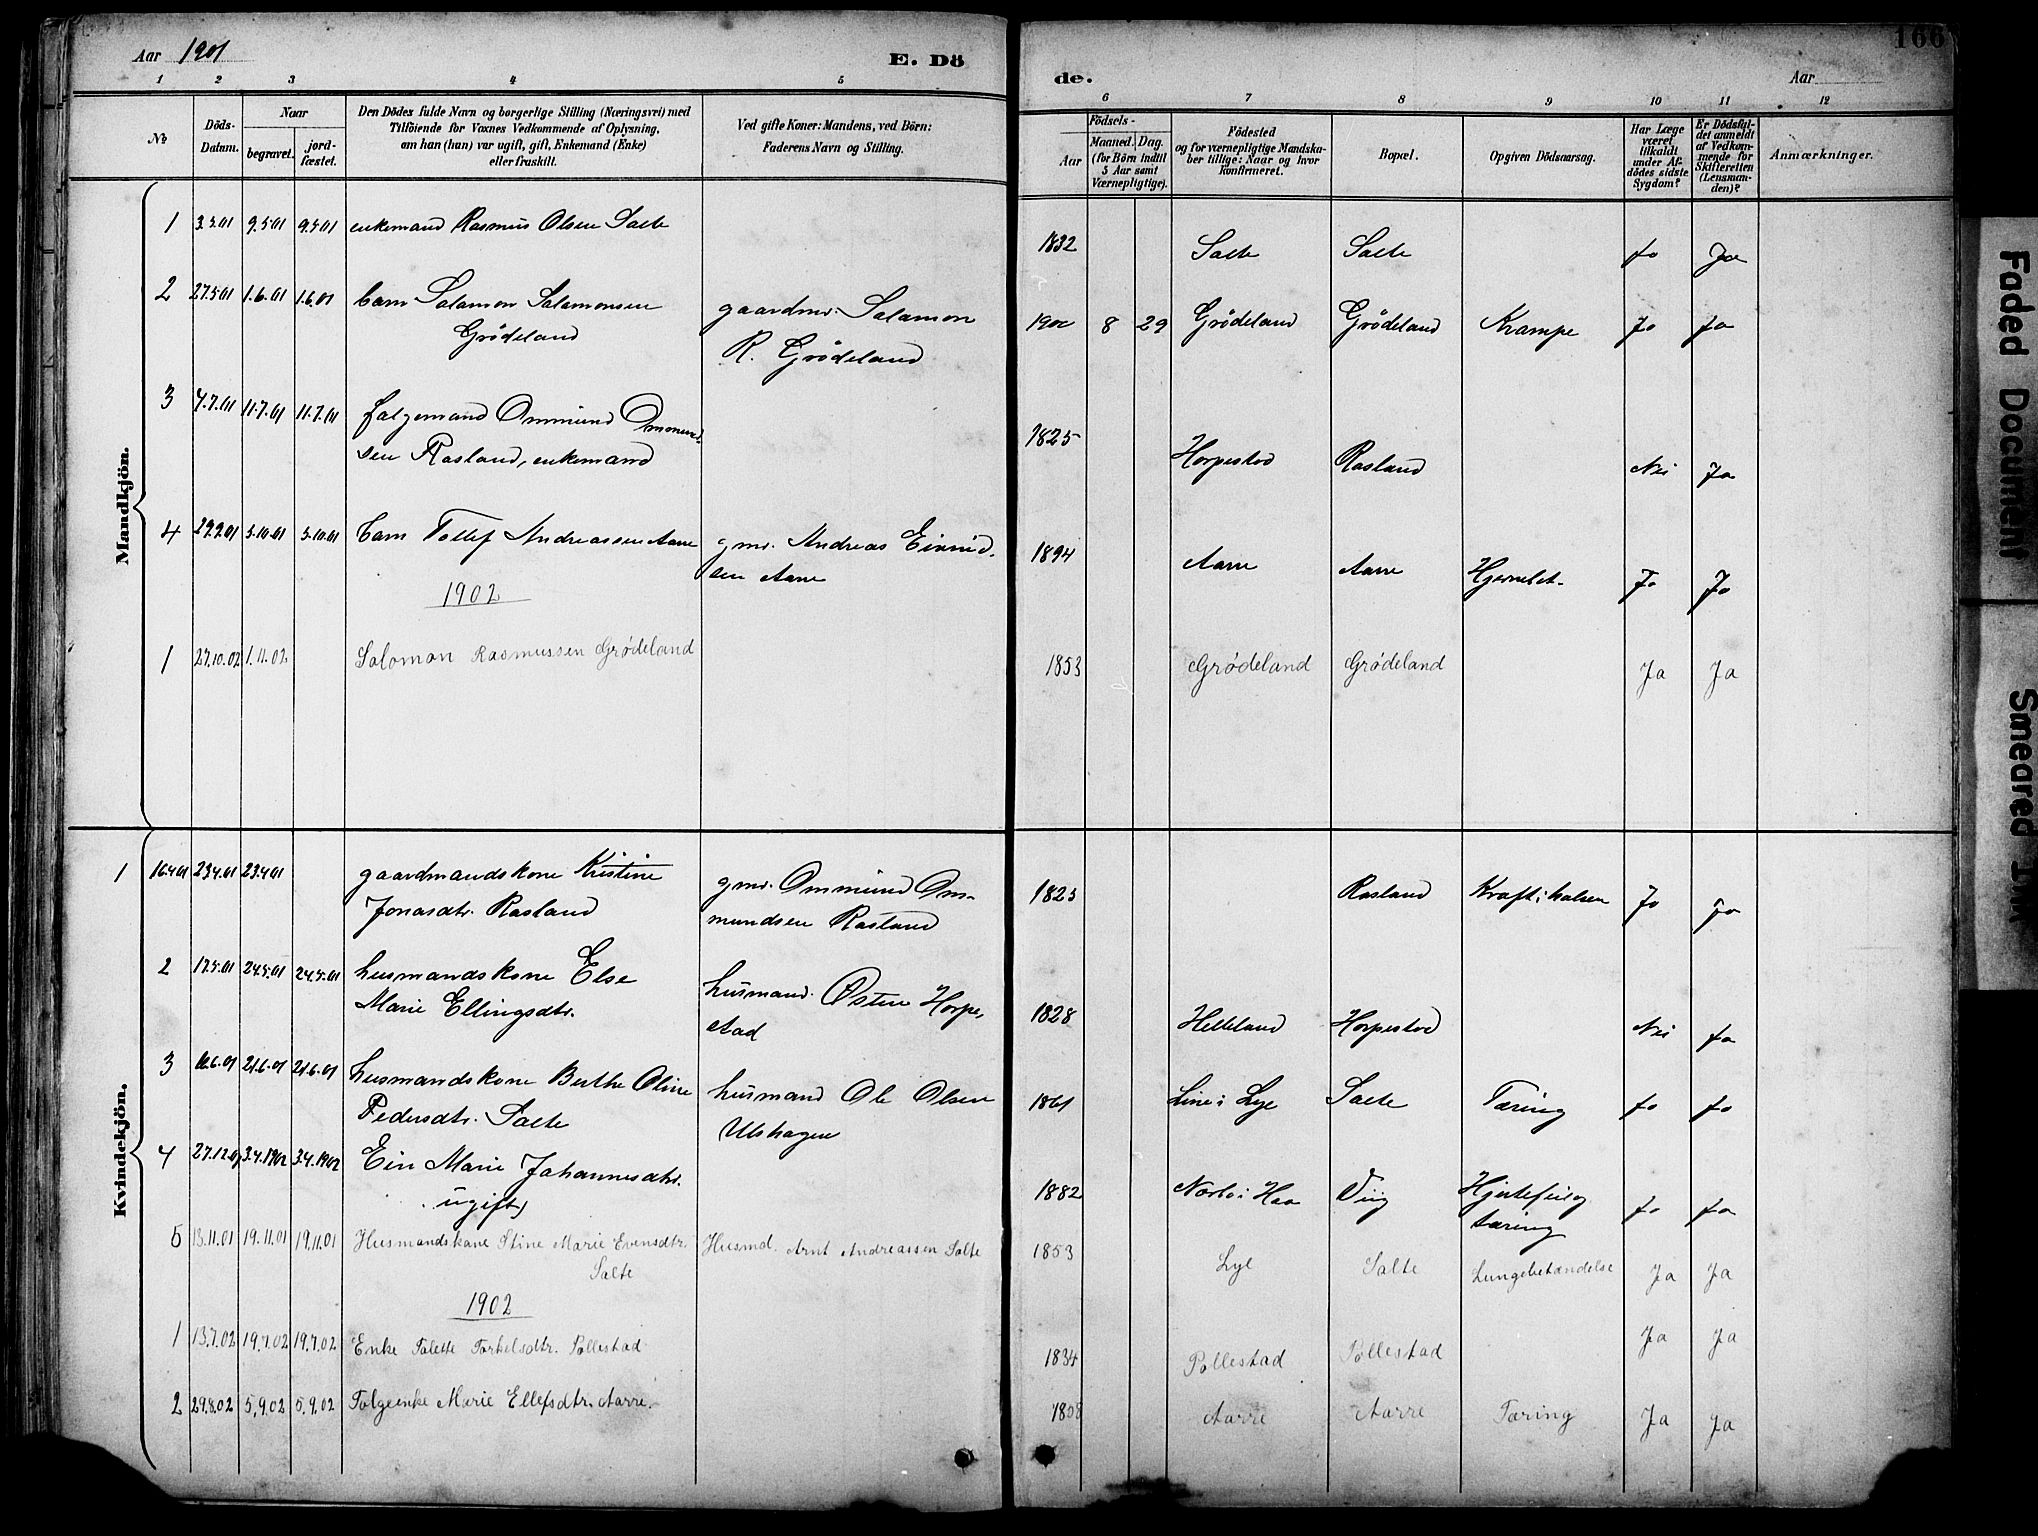 Aar 1901
E. Dö
de.
Aar
166
1 2 3 4 5
6 7 8 9 10 11 12
No
Döds-Datum.
Naar
begravet.
jord-fæstet.
Den Dödes fulde Navn og borgerlige Stilling (Næringsvei) med
Tilföiende for Voxnes Vedkommende af Oplysning,
om han (hun) var ugift, gift, Enkemand (Enke)
eller fraskilt.
Ved gifte Koner: Mandens, ved Börn:
Faderens Navn og Stilling.
Födsels-
Aar
Maaned. Dag.
(for Börn indtil
5 Aar samt
Værnepligtige).
Födested
og for værnepligtige Mandska-
ber tillige: Naar og hvor
konfirmeret.
Bopæl.
Opgiven Dödsaarsag.
Har Læge
været
tilkaldt
under Af-
dödes sidste
Sygdom?
Er Dödsfal-
det anmeldt
af Vedkom-
mende for
Skifteretten
(Lensman-
den)?
Anmærkninger.
Mandkjön.
1 3.5.01 9.5.01 9.5.01 enkemand Rasmus Olsen Salte 1832 Salte Salte Ja Ja
2 27.5.01 1.6.01 1.6.01 barn Salamon Salamonsen
Grödeland
gaardmr. Salamon
R. Grödeland
1900 8 29 Grödeland Grödeland Krampe Ja Ja
3 4.7.01 11.7.01 11.7.01 følgemand Ommund Ommund-
sen Rasland, enkemand
1825 Horpestad Rasland Nei Ja
4 29.9.01 5.10.01 5.10.01 barn Tollef Andreassen Aarre
gmr. Andreas Eivind-
sen Aarre
1894 Aarre Aarre Ja Ja
1902
1 27.10.02 1.11.02 Salomon Rasmussen Grødeland 1853 Grødeland Grødeland Ja Ja
Kvindekjön.
1 16.4.01 23.4.01 23.4.01 gaardmandskone Kristine
Jonasdtr. Rasland
gmr. Ommund Om-
mundsen Rasland
1825 Rasland Kræft i halsen Ja Ja
2 17.5.01 24.5.01 24.5.01 husmandskone Else
Marie Ellingsdtr.
husmand Østen Horpe-
stad
1828 Helleland Horpestad Nei Ja
3 16.6.01 21.6.01 21.6.01 husmandskone Berthe Oline
Pedersdtr. Salte
husmand Ole Olsen
Ulshagen
1861 Line i Lye Salte Tæring Ja Ja
4 27.12.01 3.4.1902 3.4.1902 Marie Johannesdtr.
ugift
1882 Nærbø i Haa Hjertefeil og
tæring
Ja Ja
5 13.11.01 19.11.01 19.11.01 Husmandskone Stine Marie Evensdtr.
Salte
Husmd. Arnt Andreassen Salte
1853 Lye Salte Lungebetændelse Ja Ja
1902
1 13.7.02 19.7.02 19.7.02 Enke Talette Torkelsdtr. Pollestad 1834 Pollestad Pollestad Ja Ja
2 29.8.02 5.9.02 5.9.02 Følgeenke Marie Ellefsdtr. Aarre. 1808 Aarre Aarre Tæring Ja Ja
Faded Document
Smeared Ink